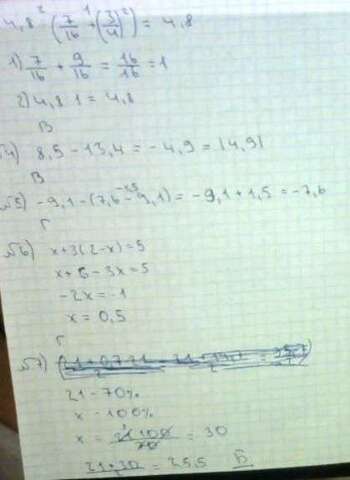 4,8 (7/16 + (3/4)²) = 4,8
1) 7/16 + 9/16 = 16/16 = 1
2) 4,8 · 1 = 4,8
В
№4) 8,5 - 13,4 = -4,9 = |4,9|
В
№5) -9,1 - (7,6 - 9,1) = -9,1 + 1,5 = -7,6
Г
№6) x + 3(2 - x) = 5
x + 6 - 3x = 5
-2x = -1
x = 0,5
Г
№7)
21 - 70%
x - 100%
x = 21·100/70 = 30
21+30 = 25,5 Б